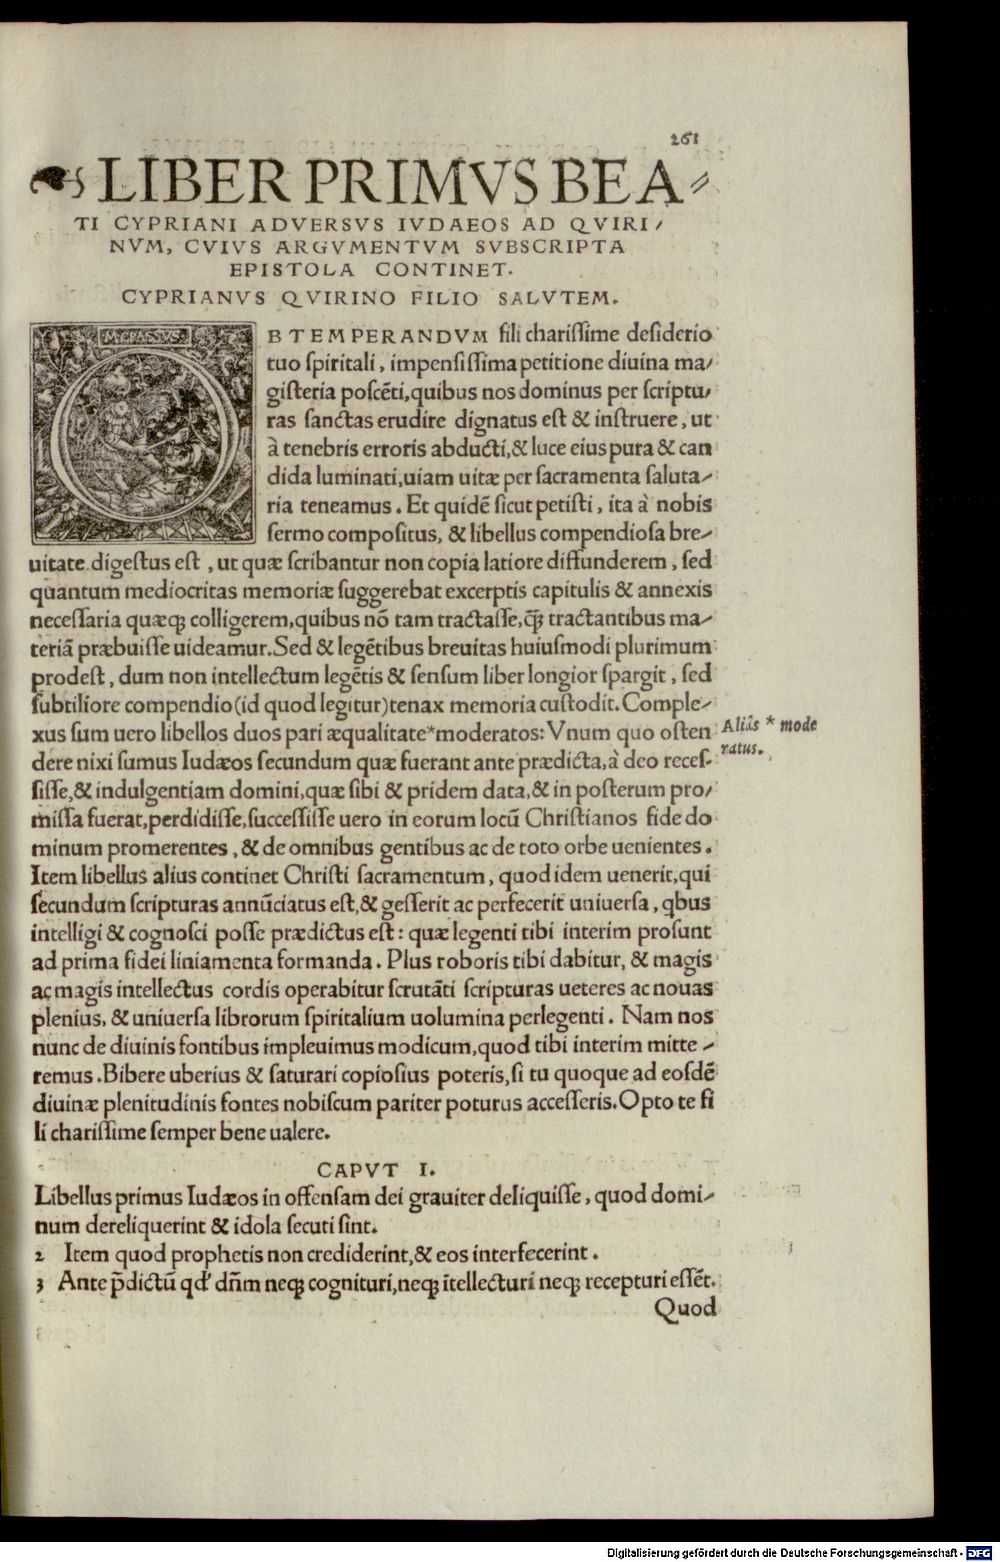 261
LIBER PRIMVS BEA⸗
TI CYPRIANI ADVERSVS IVDAEOS AD QVIRI/
NVM, CVIVS ARGVMENTVM SVBSCRIPTA
EPISTOLA CONTINET.
CYPRIANVS QVIRINO FILIO SALVTEM.
BTEMPERANDVM fili chariſſime deſiderio
tuo ſpiritali, impenſiſſima petitione diuina ma/
giſteria poſcēti,quibus nos dominus per ſcriptu/
ras ſanctas erudire dignatus eſt & inſtruere, ut
à tenebris erroris abducti,& luce eius pura & can
dida luminati,uiam uitæ per ſacramenta ſaluta/
ria teneamus. Et quidē ſicut petiſti, ita à nobis
ſermo compoſitus, & libellus compendioſa bre/
uitate digeſtus eſt, ut quæ ſcribantur non copia latiore diffunderem, ſed
quantum mediocritas memoriæ ſuggerebat excerptis capitulis & annexis
neceſſaria quæq; colligerem,quibus nō tam tractaſſe,q̃; tractantibus ma/
teriā præbuiſſe uideamur.Sed & legētibus breuitas huiuſmodi plurimum
prodeſt, dum non intellectum legētis & ſenſum liber longior ſpargit, ſed
ſubtiliore compendio(id quod legitur)tenax memoria cuſtodit.Comple/
xus ſum uero libellos duos pari æqualitate*moderatos: Vnum quo oſten
Aliâs * mode
ratus.
dere nixi ſumus Iudæos ſecundum quæ fuerant ante prædicta,à deo receſ-
ſiſſe,& indulgentiam domini,quæ ſibi & pridem data,& in poſterum pro/
miſſa fuerat,perdidiſſe,ſucceſſiſſe uero in eorum locū Chriſtianos fide do
minum promerentes, & de omnibus gentibus ac de toto orbe uenientes.
Item libellus alius continet Chriſti ſacramentum, quod idem uenerit,qui
ſecundum ſcripturas annūciatus eſt,& geſſerit ac perfecerit uniuerſa, qbus
intelligi & cognoſci poſſe prædictus eſt: quæ legenti tibi interim proſunt
ad prima fidei liniamenta formanda. Plus roboris tibi dabitur, & magis
ac magis intellectus cordis operabitur ſcrutāti ſcripturas ueteres ac nouas
plenius, & uniuerſa librorum ſpiritalium uolumina perlegenti. Nam nos
nunc de diuinis fontibus impleuimus modicum,quod tibi interim mitte/
remus.Bibere uberius & ſaturari copioſius poteris,ſi tu quoque ad eoſdē
diuinæ plenitudinis fontes nobiſcum pariter poturus acceſſeris.Opto te fi
li chariſſime ſemper bene ualere.
CAPVT I.
Libellus primus Iudæos in offenſam dei grauiter deliquiſſe, quod domi/
num dereliquerint & idola ſecuti ſint.
2 Item quod prophetis non crediderint,& eos interfecerint.
3 Ante p̄dictū qd' dñm neq; cognituri,neq; ītellecturi neq; recepturi eſſēt.
Quod
Digitalisierung gefördert durch die Deutsche Forschungsgemeinschaft - DFG